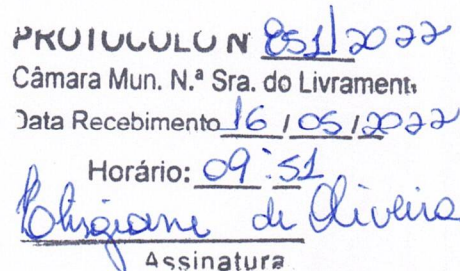 PROTOCOLO N 851/2022
Câmara Mun. N.ª Sra. do Livrament
Data Recebimento 16/05/2022
Horário: 09:51
de Oliveira
Assinatura